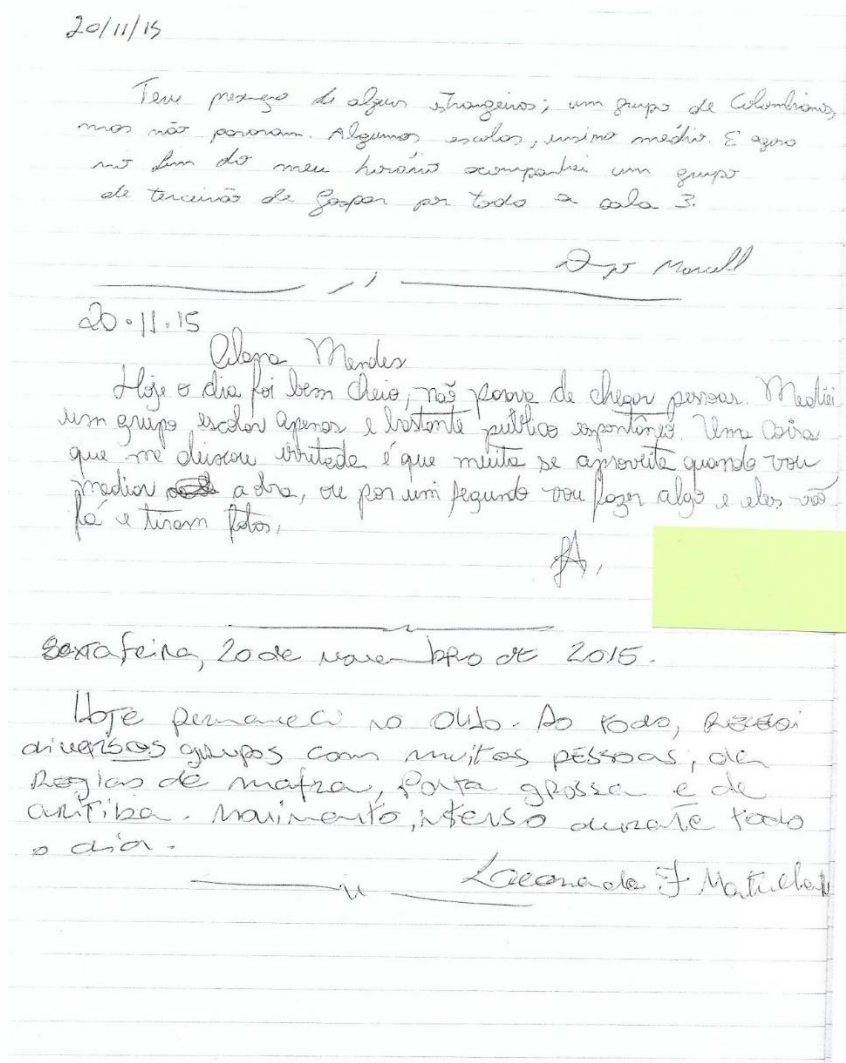 20/11/15
Teve presença de alguns estrangeiros; um grupo de Colombianos,
mas não pararam. Algumas escolas, ensino médio. E agora
no fim do meu horário acompanhei um grupo
de terceirão de Gaspar por toda a sala 3.
Marcell
20.11.15
Alana Mendes
Hoje o dia foi bem cheio, não parava de chegar pessoas. Mediei
um grupo escolar apenas e bastante público espontâneo. Uma coisa
que me deixou irritada é que muita se aproveita quando vou
mediar a obra, ou por um segundo vou fazer algo e eles vão
lá e tiram fotos.
Sexta feira, 20 de novembro de 2015.
Hoje permaneci no Olho. Ao todo, recebi
diversos grupos com muitas pessoas, da
região de mafra, Ponta grossa e de
curitiba. Movimento intenso durante todo
o dia.